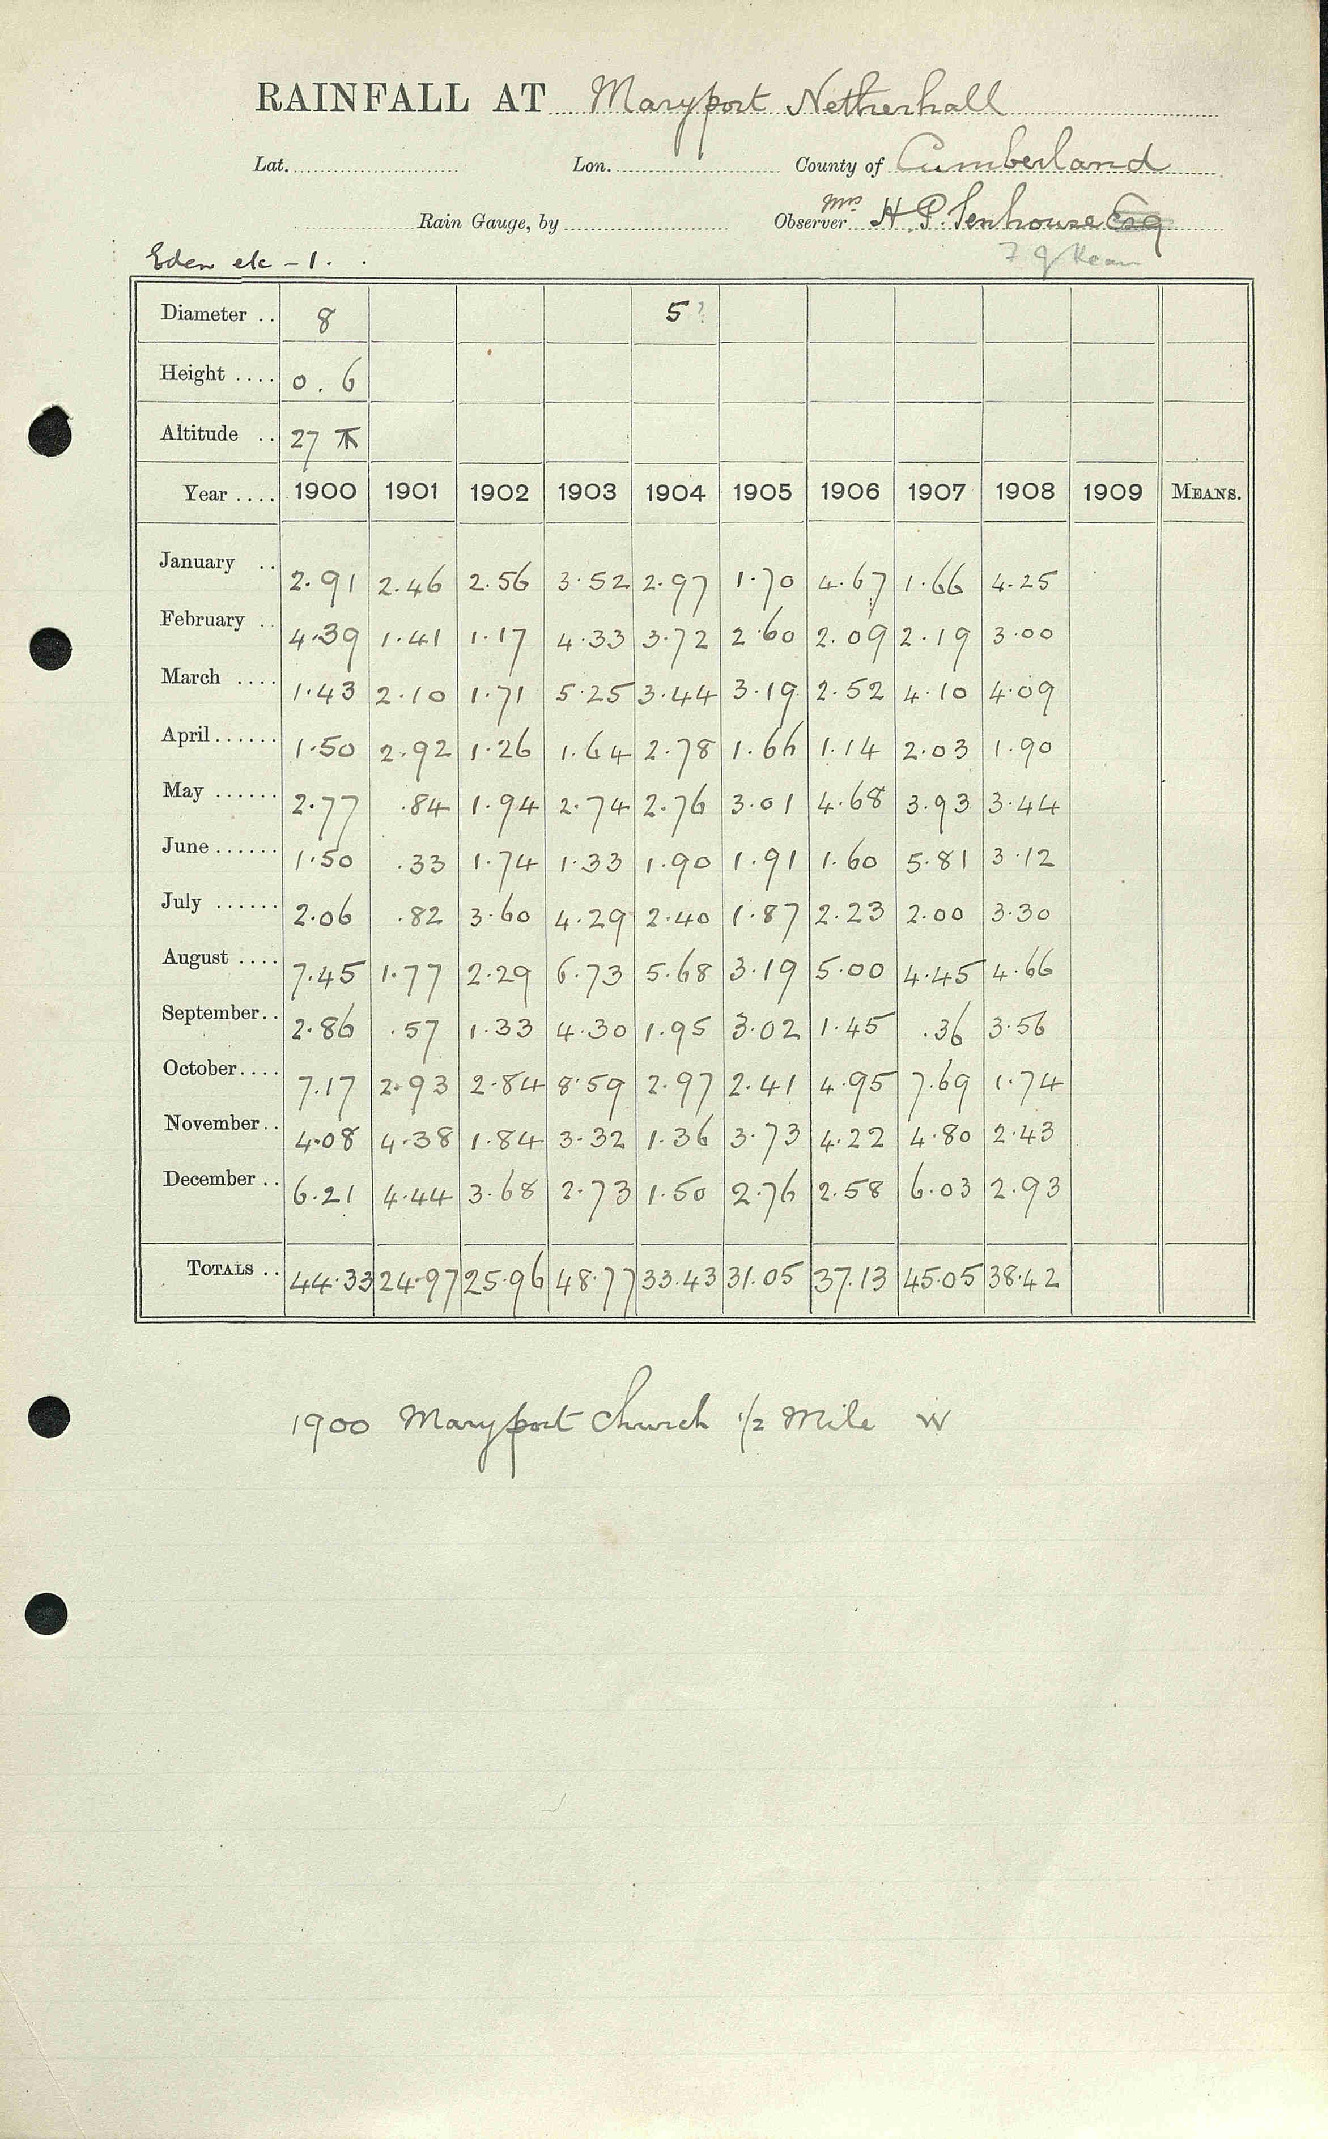 RAINFALL AT Maryport Netherhall
Lat. Lon. County of Cumberland
Rain Gauge, by Observer Mrs H. P. Senhouse Esq
Eden etc - 1.
Diameter .. 8 5?
Height .... 0. 6
Altitude .. 27
Year .... 1900 1901 1902 1903 1904 1905 1906 1907 1908 1909 MEANS.
January .. 2.91 2.46 2.56 3.52 2.97 1.70 4.67 1.66 4.25
February .. 4.39 1.41 1.17 4.33 3.72 2.60 2.09 2.19 3.00
March .... 1.43 2.10 1.71 5.25 3.44 3.19 2.52 4.10 4.09
April...... 1.50 2.92 1.26 1.64 2.78 1.66 1.14 2.03 1.90
May ...... 2.77 .84 1.94 2.74 2.76 3.01 4.68 3.93 3.44
June ...... 1.50 .33 1.74 1.33 1.90 1.91 1.60 5.81 3.12
July ...... 2.06 .82 3.60 4.29 2.40 1.87 2.23 2.00 3.30
August .... 7.45 1.77 2.29 6.73 5.68 3.19 5.00 4.45 4.66
September.. 2.86 .57 1.33 4.30 1.95 3.02 1.45 .36 3.56
October.... 7.17 2.93 2.84 8.59 2.97 2.41 4.95 7.69 1.74
November.. 4.08 4.38 1.84 3.32 1.36 3.73 4.22 4.80 2.43
December .. 6.21 4.44 3.68 2.73 1.50 2.76 2.58 6.03 2.93
TOTALS .. 44.33 24.97 25.96 48.77 33.43 31.05 37.13 45.05 38.42
1900 Maryport Church 1/2 Mile W